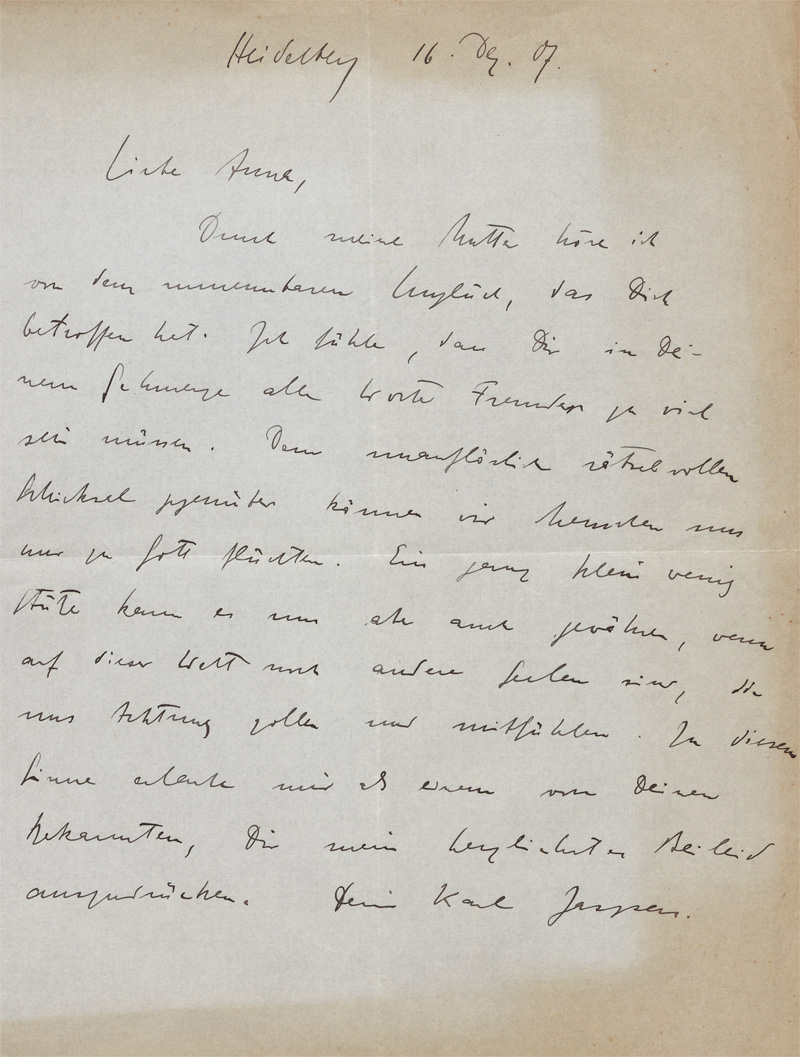 Heidelberg 16. Dez. 07.
Liebe Anna,
Durch meine Mutter höre ich
von dem unnennbaren Unglück, das Dich
betroffen hat. Ich fühle, dass Dir in Dei-
nem Schmerze alle Worte Fremder zu viel
sein müssen. Dem unauflöslich rätselvollen
Schicksal gegenüber können wir Menschen uns
nur zu Gott flüchten. Ein ganz klein wenig
Stütze kann es uns aber auch gewähren, wenn
auf dieser Welt noch andere Seelen sind, die
uns Achtung zollen und mitfühlen. In diesem
Sinne erlaube mir als einem von Deinen
Bekannten, Dir mein herzlichstes Beileid
auszudrücken. Dein Karl Jaspers.